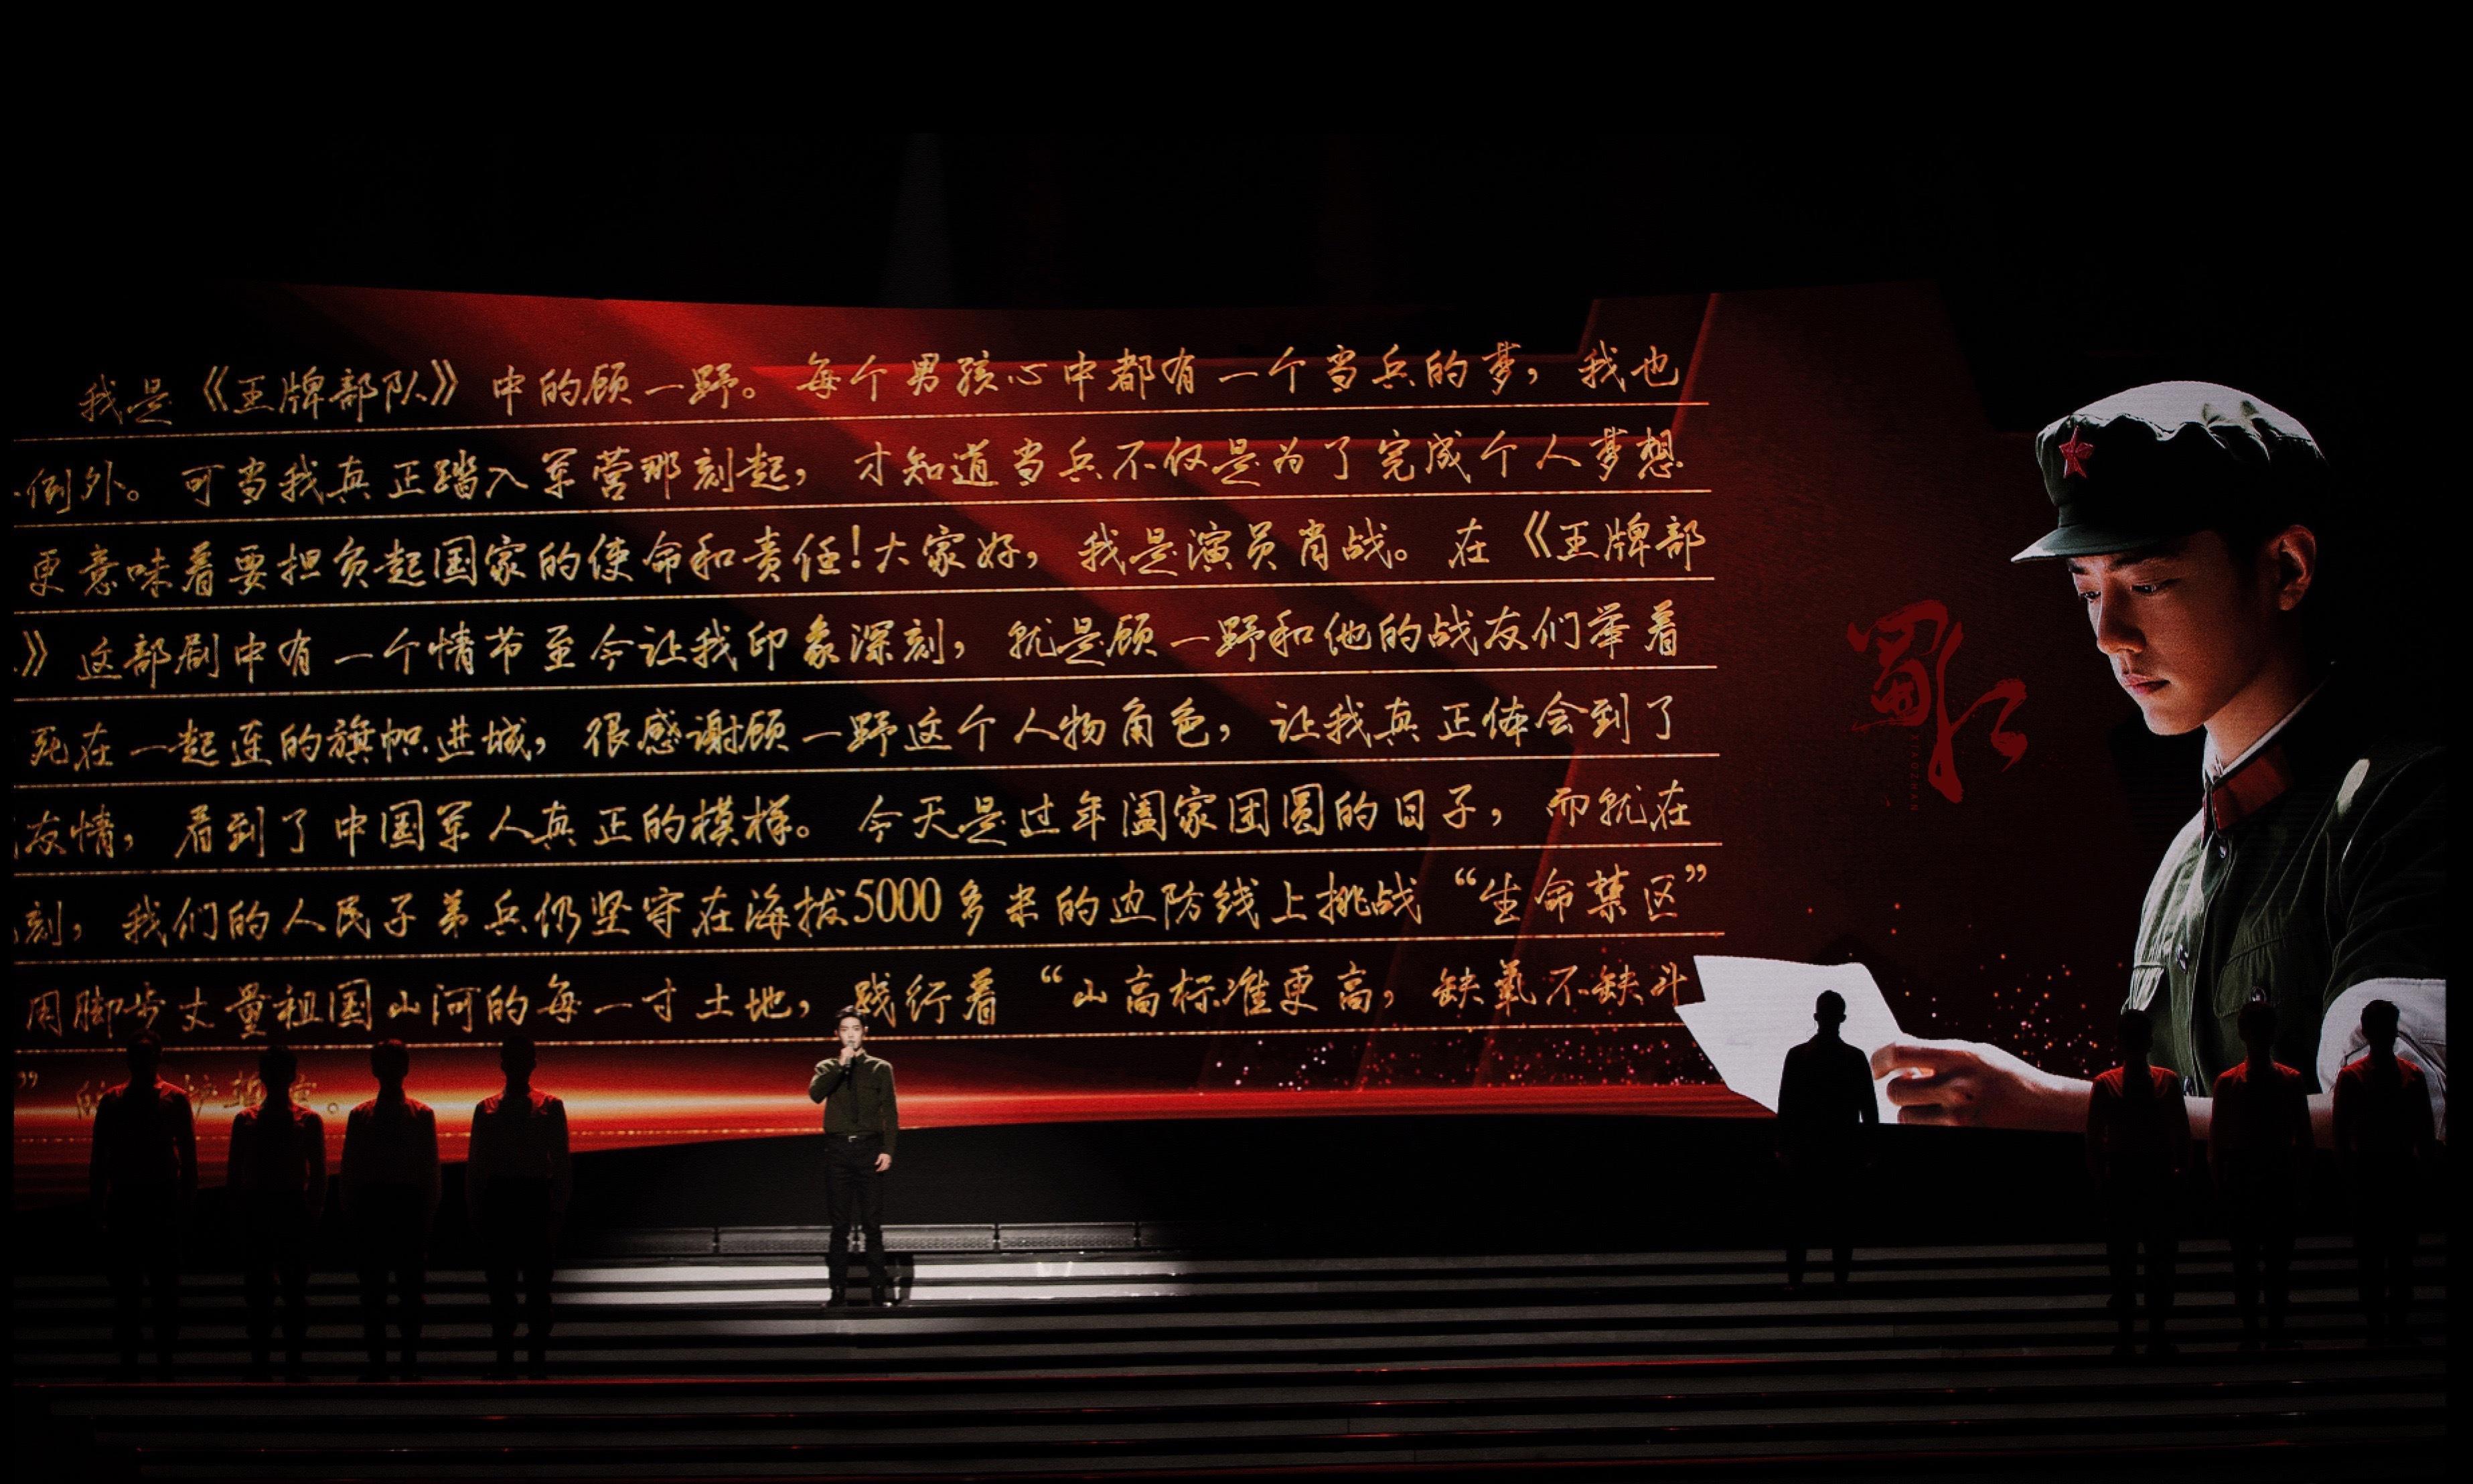 我是《王牌部队》中的顾一野。每个男孩心中都有一个当兵的梦，我也
例外。可当我真正踏入军营那刻起，才知道当兵不仅是为了完成个人梦想
更意味着要担负起国家的使命和责任！大家好，我是演员肖战。在《王牌部
》这部剧中有一个情节至今让我印象深刻，就是顾一野和他的战友们举着
死在一起连的旗帜进城，很感谢顾一野这个人物角色，让我真正体会到了
友情，看到了中国军人真正的模样。今天是过年阖家团圆的日子，而就在
刻，我们的人民子弟兵仍坚守在海拔5000多米的边防线上挑战“生命禁区”
用脚步丈量祖国山河的每一寸土地，践行着“山高标准更高，缺氧不缺斗
”的
蜀江
XIAOZHAN